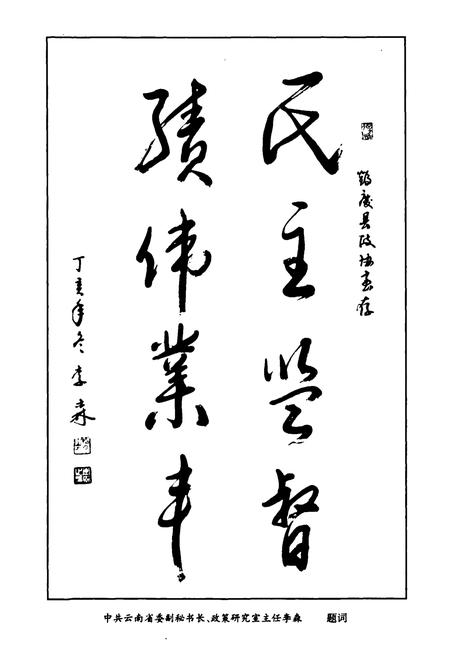 鹤庆县政协惠存
民主监督
績伟業丰
丁亥年冬 李森
中共云南省委副秘书长、政策研究室主任李森 题词